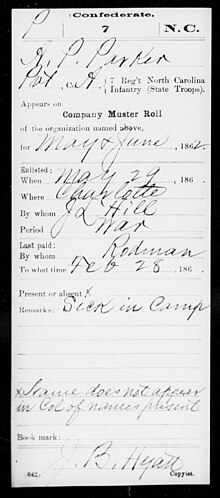 P
Confederate.
7 N.C.
A. P. Parker
Pvt, Co. A. 7 Reg't North Carolina
Infantry (State Troops).
Appears on
Company Muster Roll
of the organization named above,
for May & June, 1862.
Enlisted:
When May 29, 186 .
Where Charlotte
By whom J L Hill
Period War
Last paid:
By whom Rodman
To what time Feb 28, 186 .
Present or absent X
Remarks: Sick in Camp
x Name does not appear
in Col of names present
Book mark:
J. B. Hyatt
(642) Copyist.